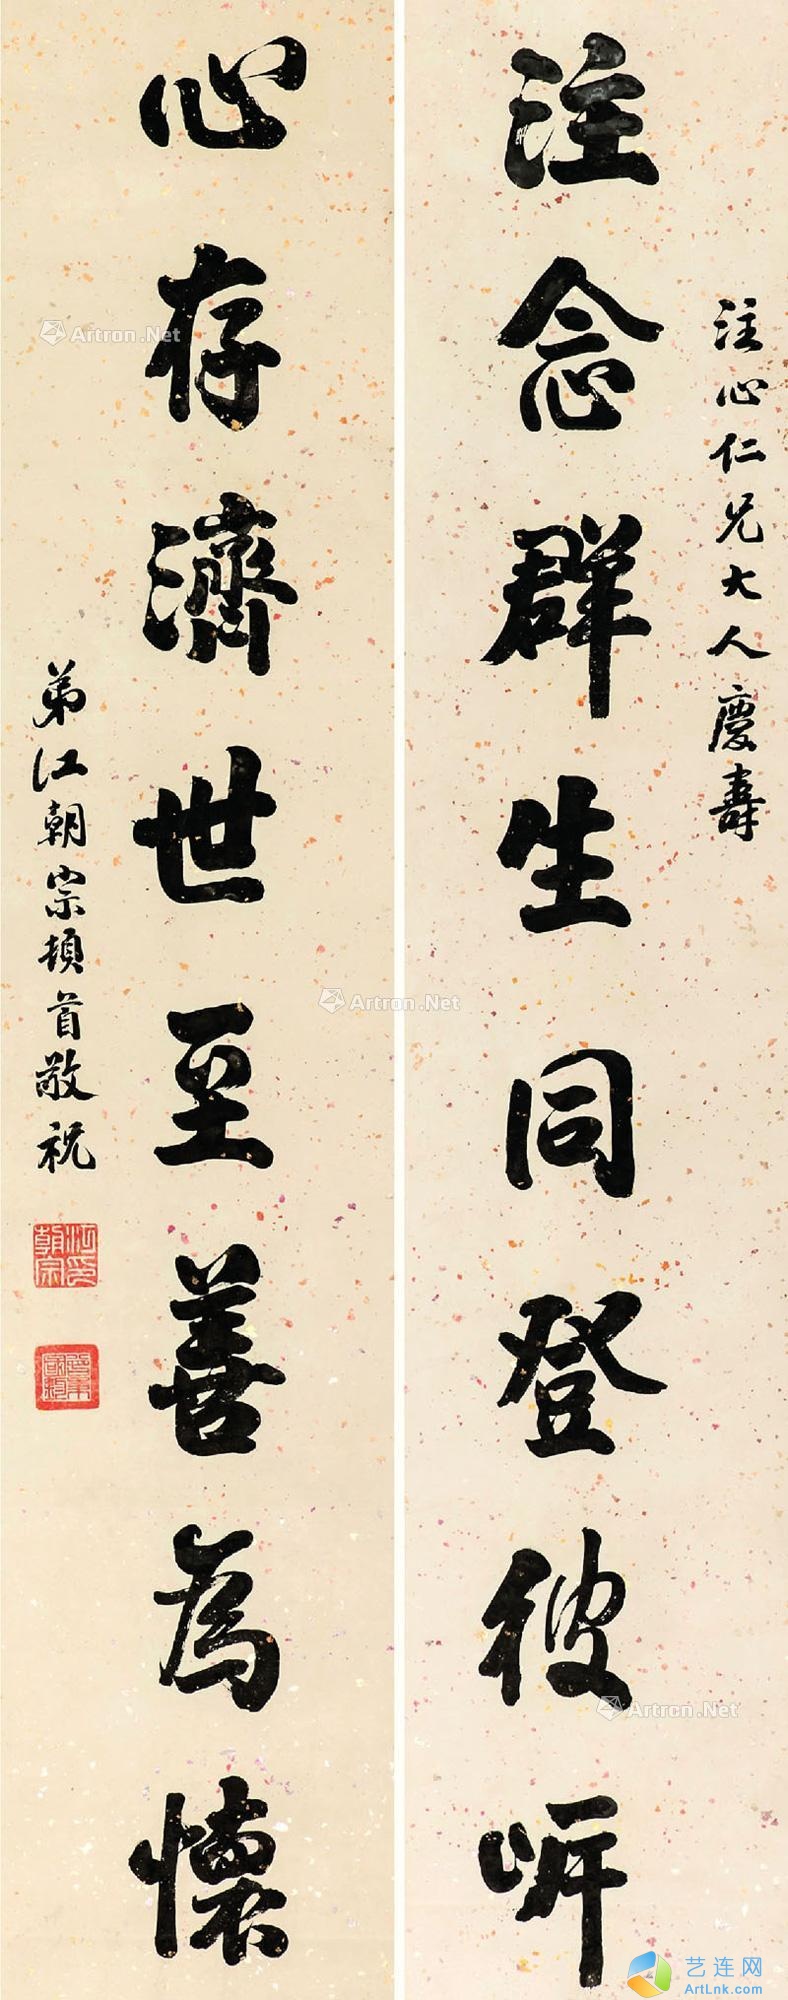 注心仁兄大人慶壽
注念群生同登彼岸
心存濟世至善為懷
弟江朝宗頓首敬祝
江朝宗印
Artron.Net
Artron.Net
Artron.Net
艺连网
ArtLnk.com